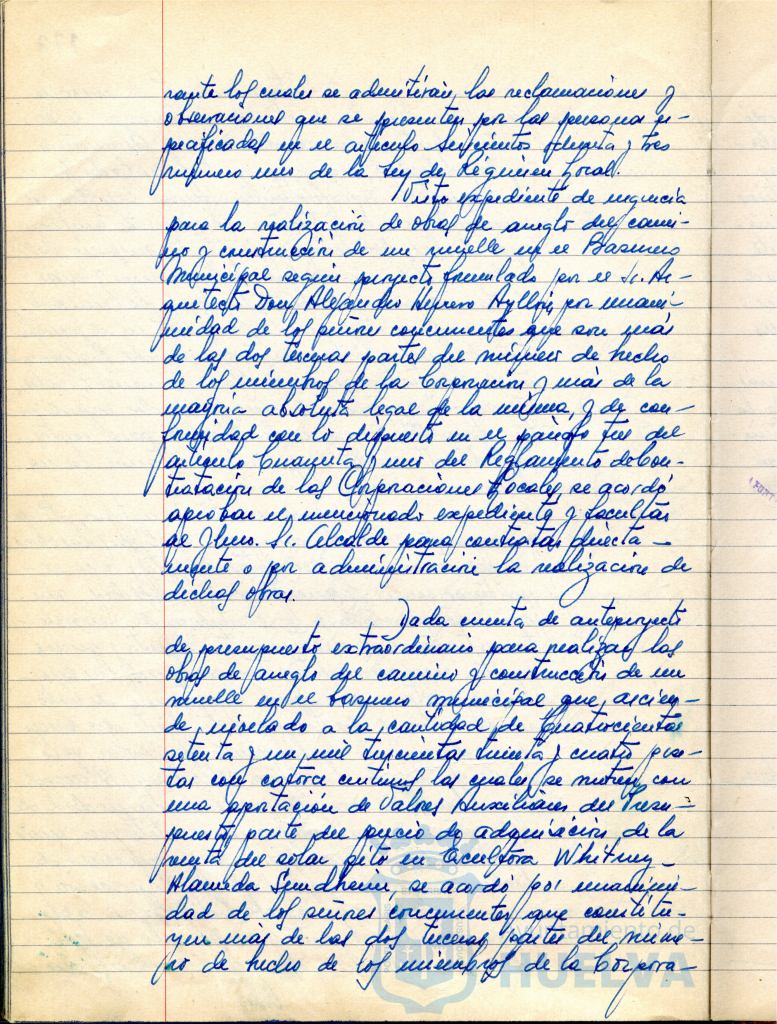 rante los cuales se admitirán las reclamaciones y
observaciones que se presenten por las personas es-
pecificadas en el artículo Seiscientos ochenta y tres
número uno de la Ley de Régimen Local.
Visto expediente de urgencia
para la realización de obras de arreglo del cami-
no y construcción de un muelle en el Basurero
Municipal según proyecto formulado por el Sr. Ar-
quitecto Don Alejandro Herrero Ayllón, por unani-
midad de los señores concurrentes que son más
de las dos terceras partes del número de hecho
de los miembros de la Corporación y más de la
mayoría absoluta legal de la misma, y de con-
formidad con lo dispuesto en el párrafo tres del
artículo Cuarenta y uno del Reglamento de Con-
tratación de las Corporaciones Locales se acordó
aprobar el mencionado expediente y facultar
al Ilmo. Sr. Alcalde para contratar directa-
mente o por administración la realización de
dichas obras.
Dada cuenta de anteproyecto
de presupuesto extraordinario para realizar las
obras de arreglo del camino y construcción de un
muelle en el basurero municipal que, ascien-
de nivelado a la cantidad de Cuatrocientas
setenta y un mil trescientas treinta y cuatro pese-
tas con catorce céntimos los cuales se nutren con
una aportación de Valores Auxiliares del Presu-
puesto, parte del precio de adquisición de la
venta del solar sito en Escultora Whitney-
Alameda Sundheim, se acordó por unanimi-
dad de los señores concurrentes que constitu-
yen más de las dos terceras partes del núme-
ro de hecho de los miembros de la Corpora-
Ayuntamiento de
HUELVA